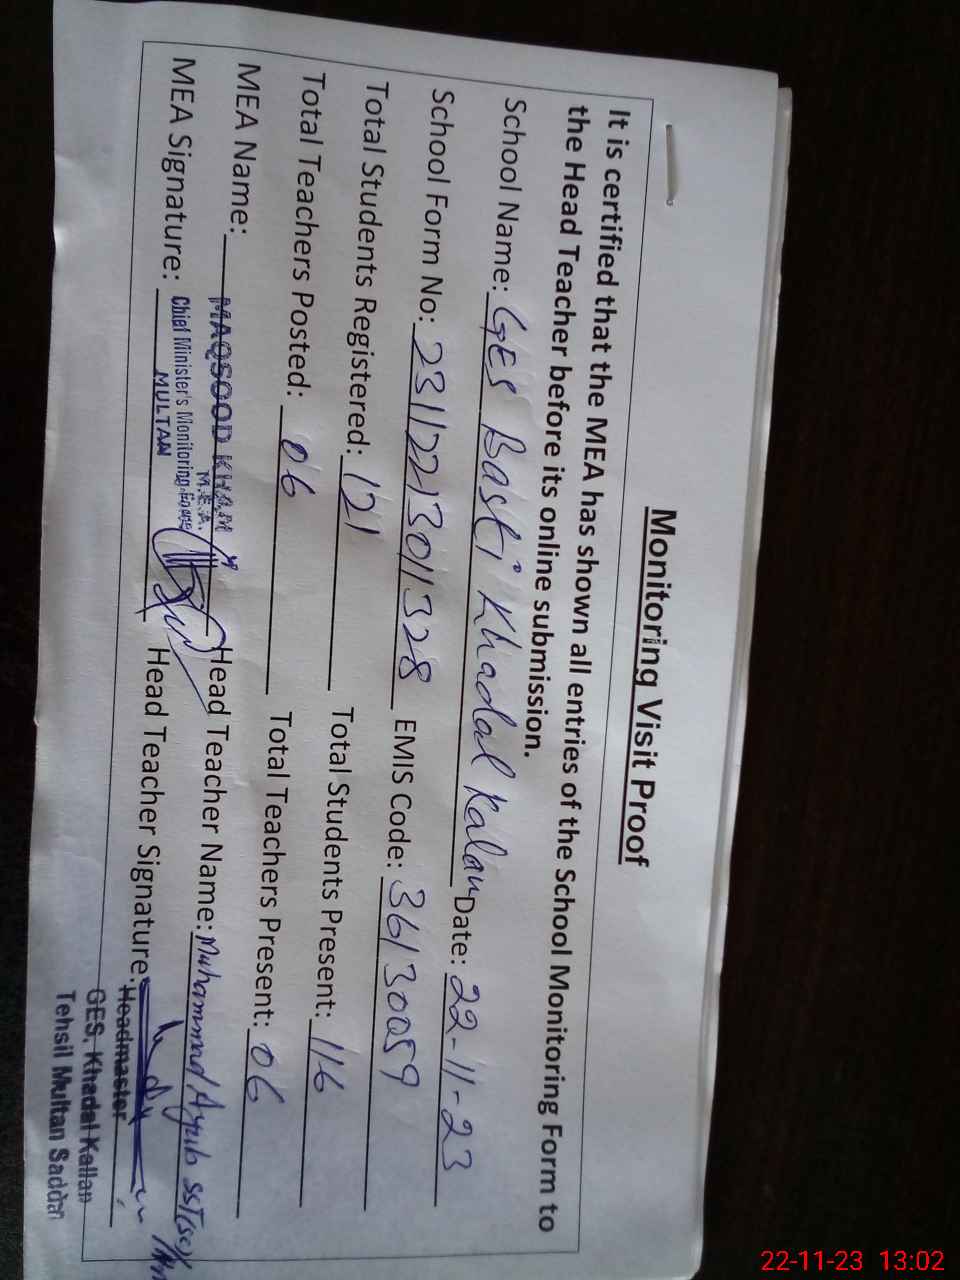 Monitoring Visit Proof
It is certified that the MEA has shown all entries of the School Monitoring Form to
the Head Teacher before its online submission.
School Name: GES Basti Khadal Kalan Date: 22-11-23
School Form No: 23112213011328 EMIS Code: 36130059
Total Students Registered: 121 Total Students Present: 116
Total Teachers Posted: 06 Total Teachers Present: 06
MEA Name: MAQSOOD KHAN Head Teacher Name: Muhammad Ayub SST(sc)
M.E.A.
MEA Signature: Chief Minister's Monitoring Force Head Teacher Signature: Headmaster
MULTAN
GES, Khadal Kallan
Tehsil Multan Saddar
22-11-23 13:02